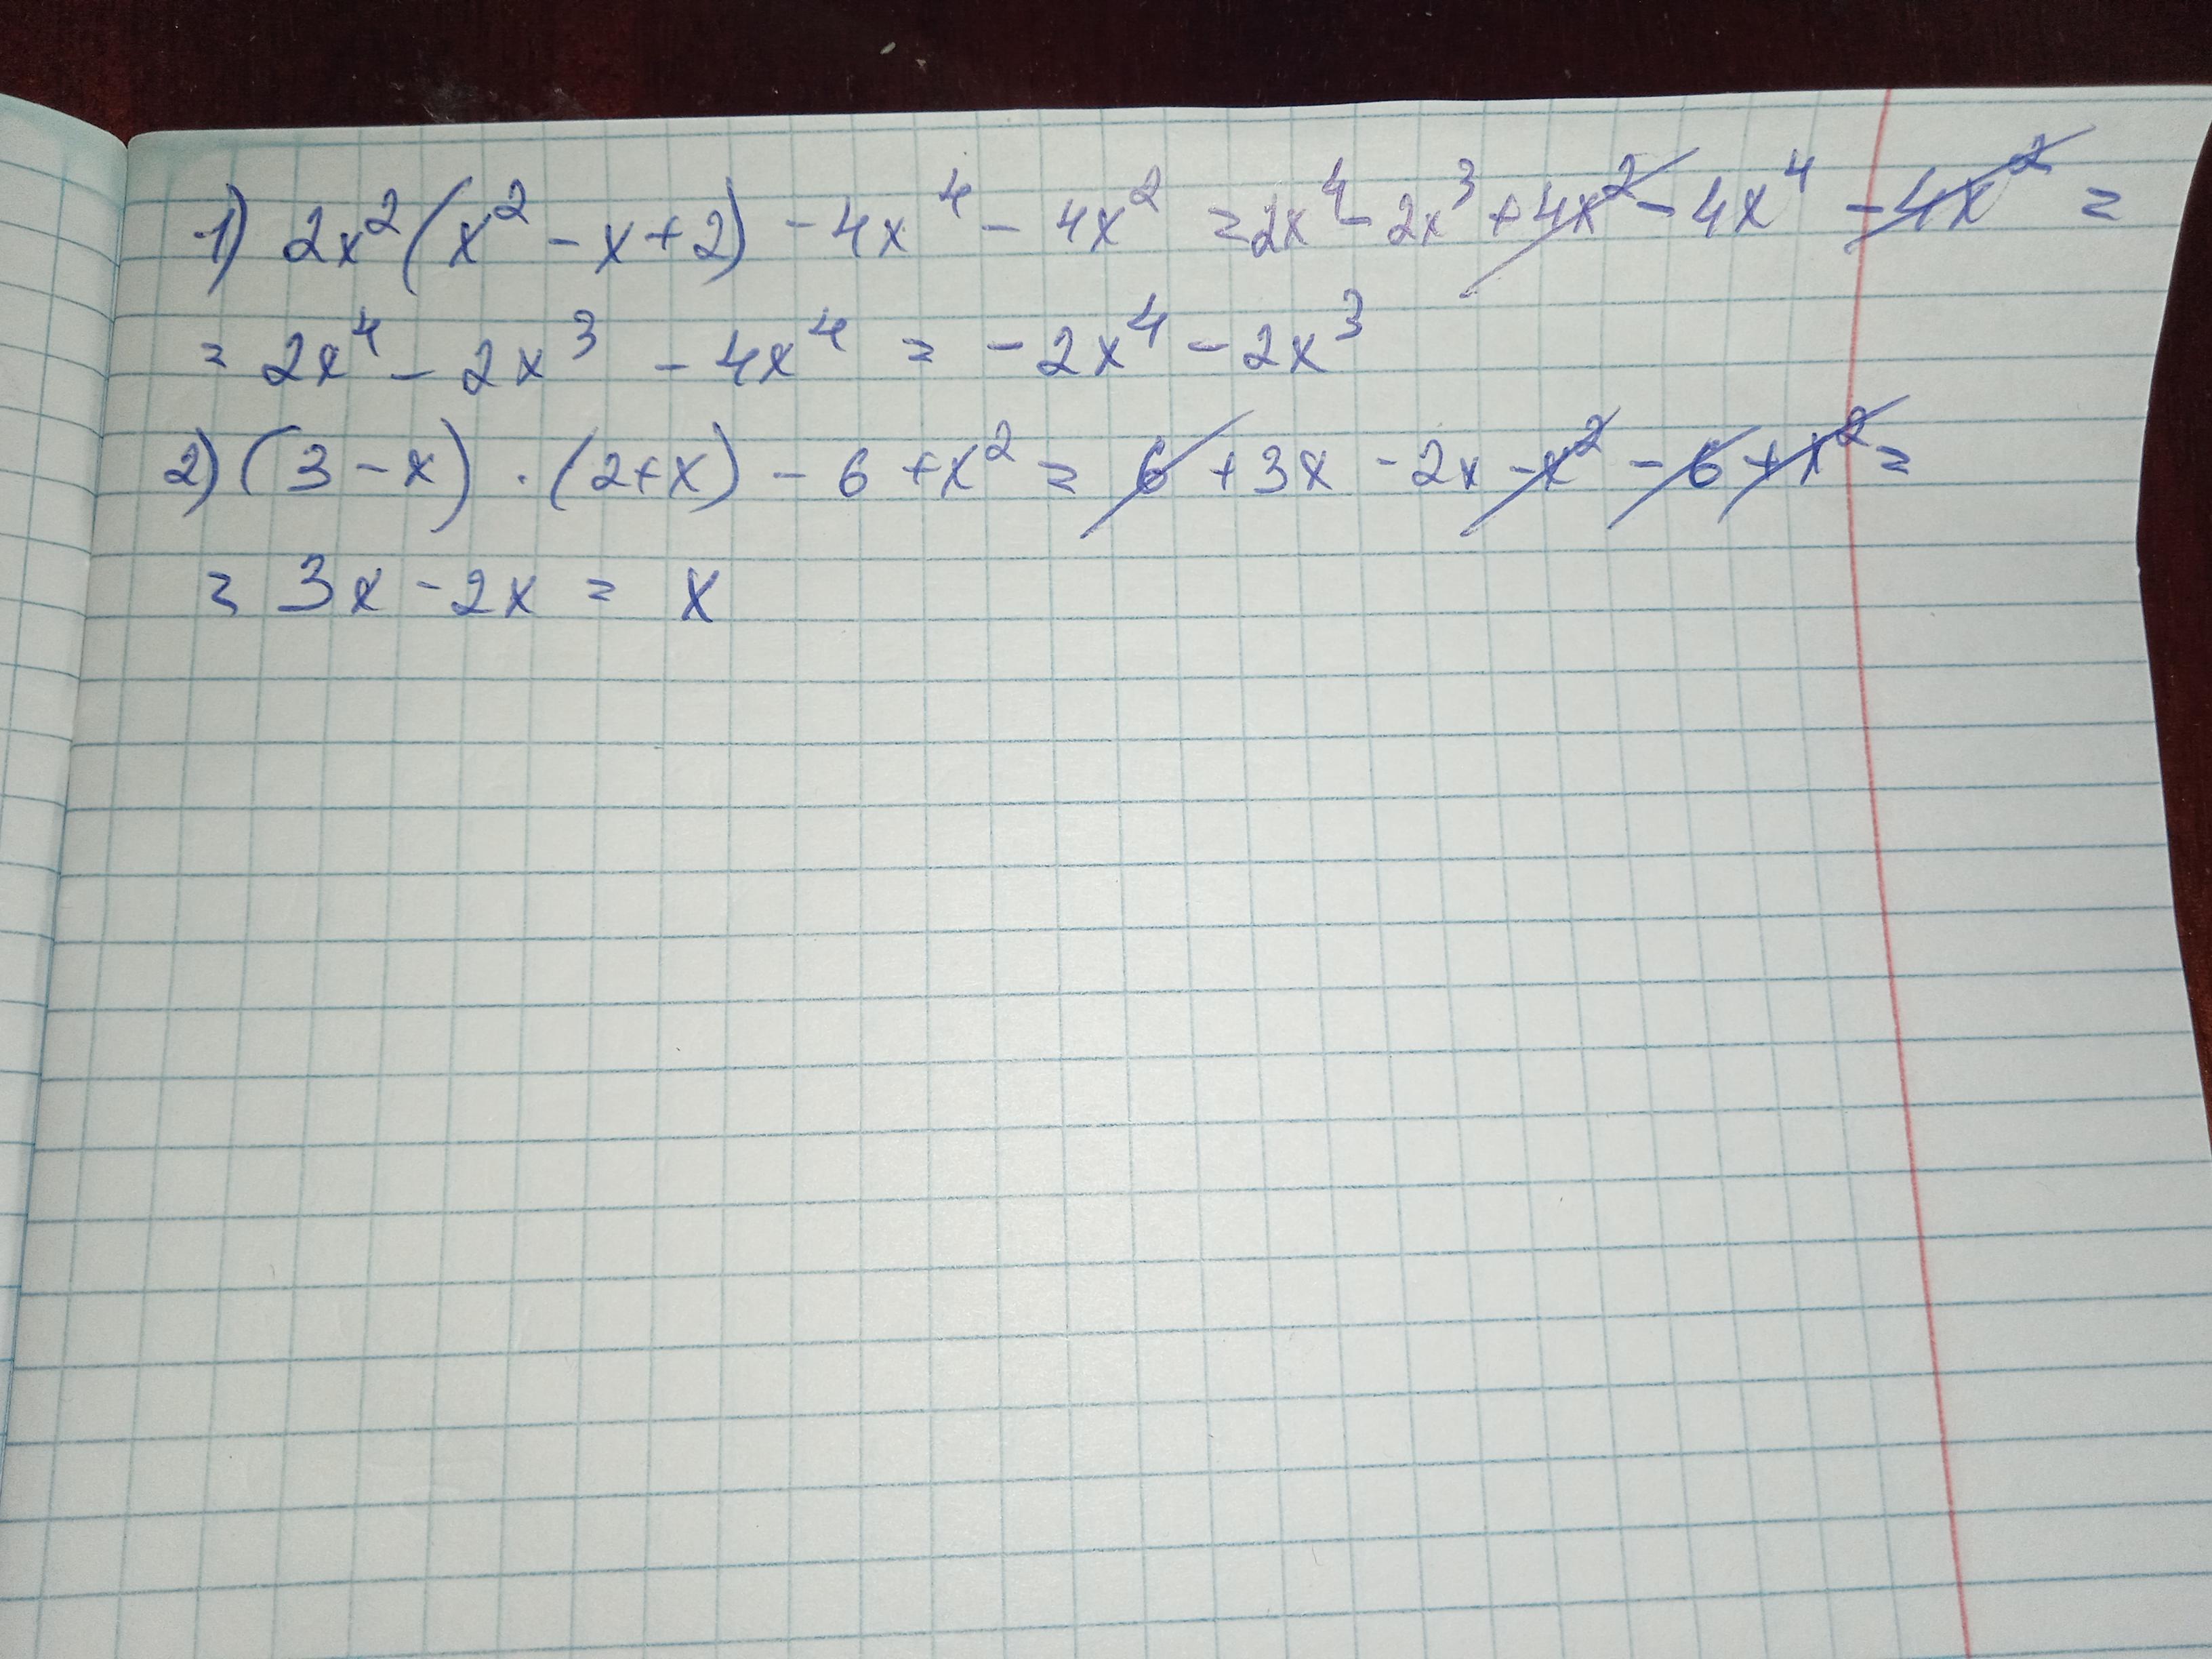 1) 2x²(x² - x + 2) - 4x⁴ - 4x² = 2x⁴ - 2x³ + 4x² - 4x⁴ - 4x² =
= 2x⁴ - 2x³ - 4x⁴ = -2x⁴ - 2x³
2) (3 - x) · (2+x) - 6 + x² = 6 + 3x - 2x - x² - 6 + x² =
= 3x - 2x = x